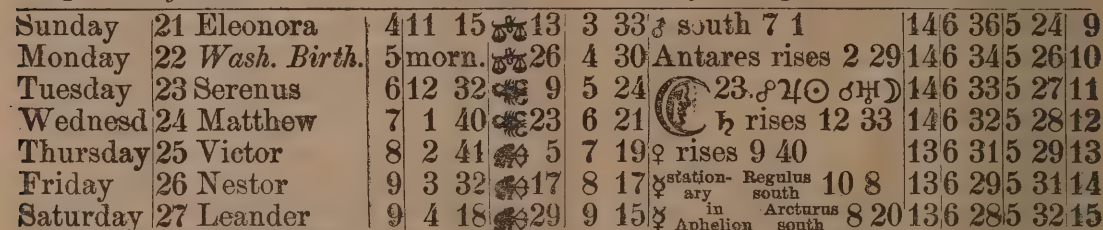 Sunday 21 Eleonora 4 11 15 ♎ 13 3 33 ♂ south 7 1 14 6 36 5 24 9
Monday 22 Wash. Birth. 5 morn. ♎ 26 4 30 Antares rises 2 29 14 6 34 5 26 10
Tuesday 23 Serenus 6 12 32 ♏ 9 5 24 ☾ 23. ☍♃☉ ☌♅☽ 14 6 33 5 27 11
Wednesd 24 Matthew 7 1 40 ♏ 23 6 21 ♄ rises 12 33 14 6 32 5 28 12
Thursday 25 Victor 8 2 41 ♐ 5 7 19 ♀ rises 9 40 13 6 31 5 29 13
Friday 26 Nestor 9 3 32 ♐ 17 8 17 ☿ station-ary Regulus south 10 8 13 6 29 5 31 14
Saturday 27 Leander 9 4 18 ♐ 29 9 15 ☿ in Aphelion Arcturus south 8 20 13 6 28 5 32 15